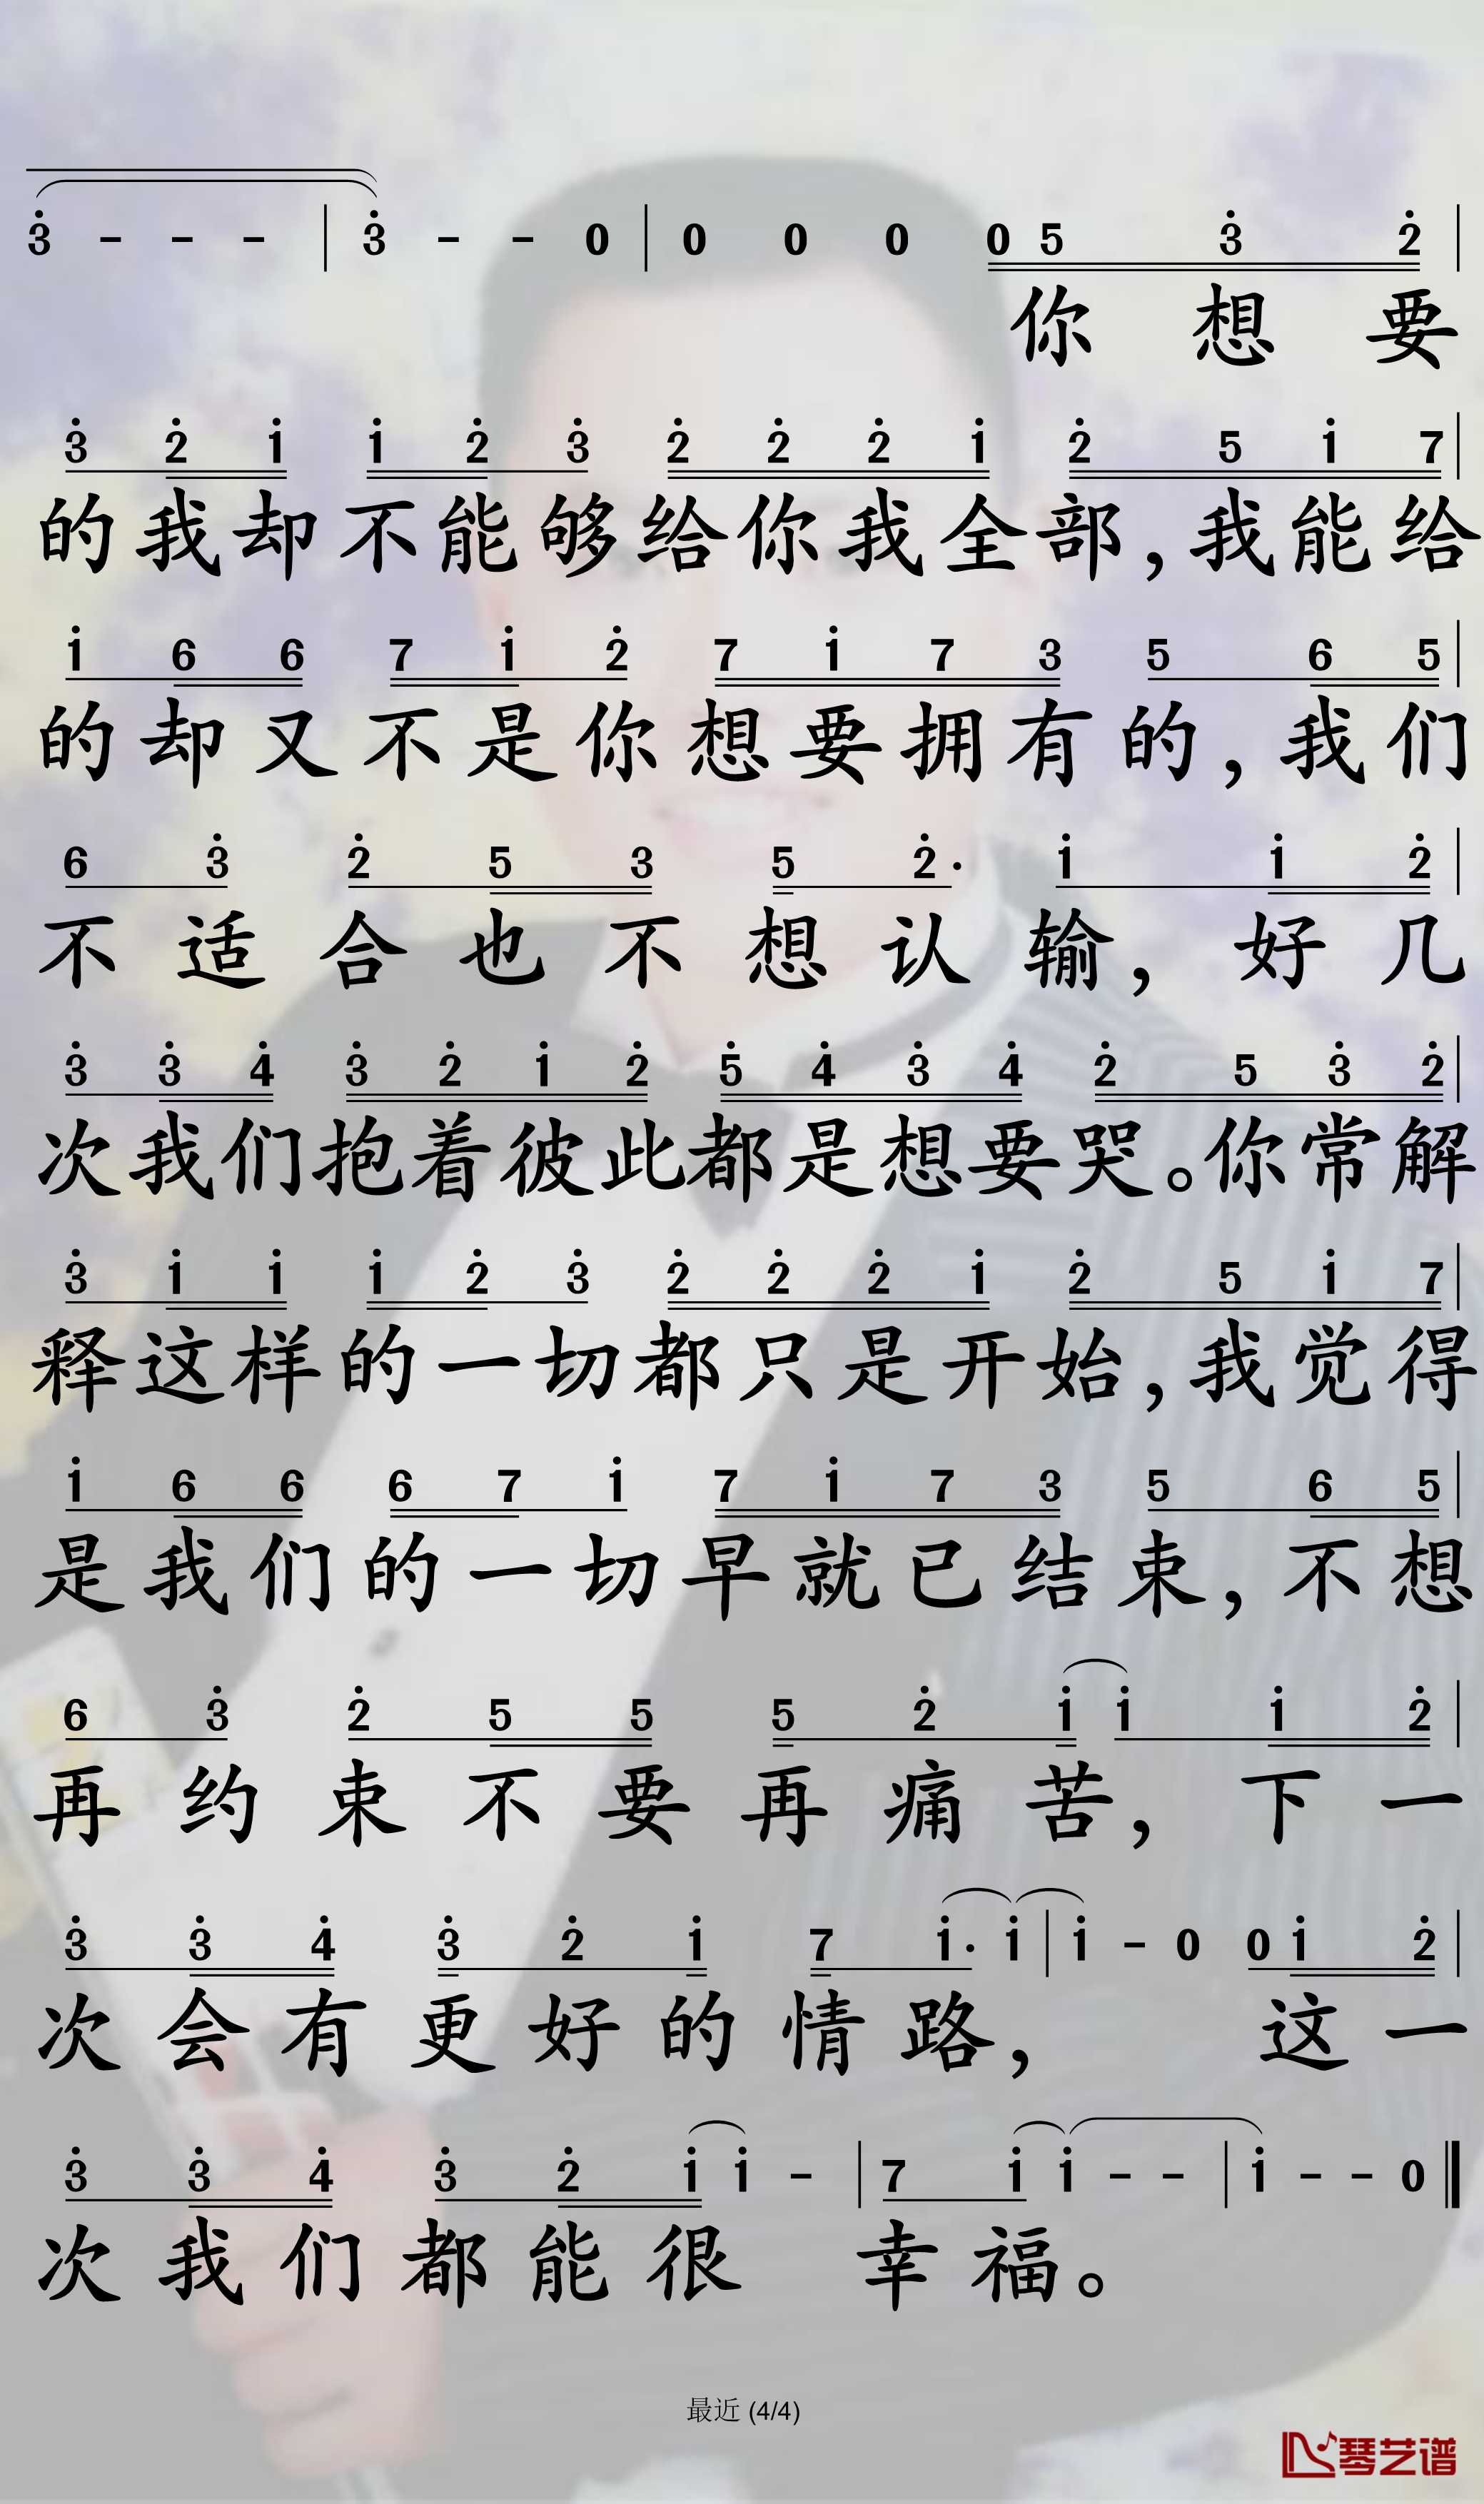 3̇ - - - | 3̇ - - 0 | 0 0 0 0 5 3̇ 2̇ |
你想要
3̇ 2̇ 1̇ 1̇ 2̇ 3̇ 2̇ 2̇ 2̇ 1̇ 2̇ 5 1̇ 7 |
的我却不能够给你我全部,我能给
1̇ 6 6 7 1̇ 2̇ 7 1̇ 7 3 5 6 5 |
的却又不是你想要拥有的,我们
6 3̇ 2̇ 5 3 5 2̇· 1̇ 1̇ 2̇ |
不适合也不想认输,好几
3̇ 3̇ 4̇ 3̇ 2̇ 1̇ 2̇ 5̇ 4̇ 3̇ 4̇ 2̇ 5 3̇ 2̇ |
次我们抱着彼此都是想要哭。你常解
3̇ 1̇ 1̇ 1̇ 2̇ 3̇ 2̇ 2̇ 2̇ 1̇ 2̇ 5 1̇ 7 |
释这样的一切都只是开始,我觉得
1̇ 6 6 6 7 1̇ 7 1̇ 7 3 5 6 5 |
是我们的一切早就已结束,不想
6 3̇ 2̇ 5 5 5 2̇ 1̇ 1̇ 1̇ 2̇ |
再约束不要再痛苦,下一
3̇ 3̇ 4̇ 3̇ 2̇ 1̇ 7 1̇· 1̇ | 1̇ - 0 0 1̇ 2̇ |
次会有更好的情路,这一
3̇ 3̇ 4̇ 3̇ 2̇ 1̇ 1̇ - | 7 1̇ 1̇ - - | 1̇ - - 0
次我们都能很幸福。
最近 (4/4)
琴艺谱